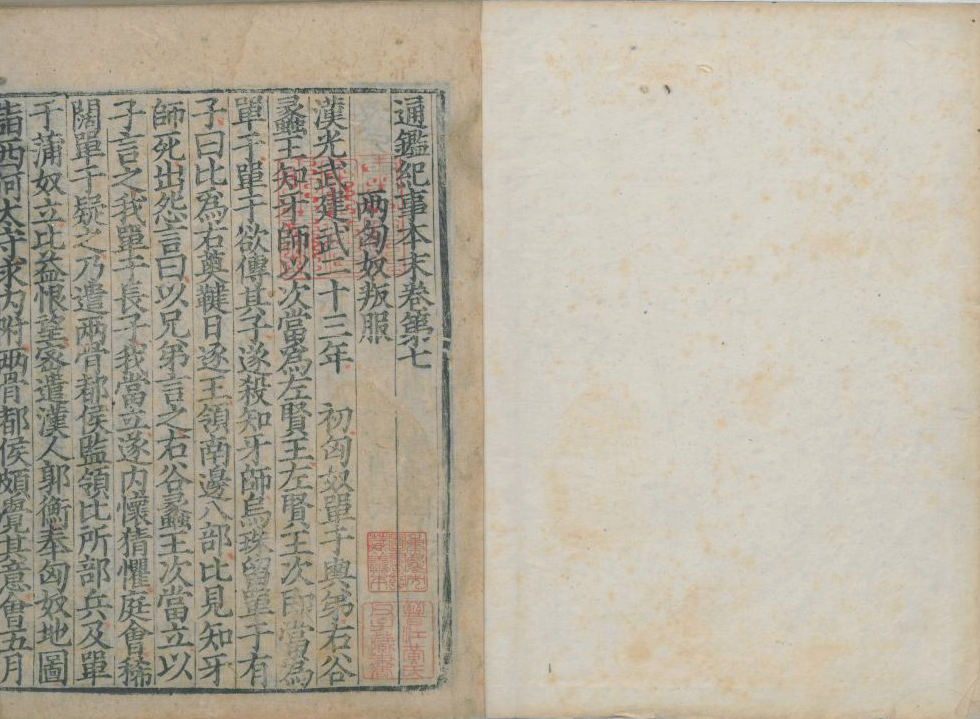 通鑑紀事本末卷第七
兩匈奴叛服
漢光武建武二十三年 初匈奴單于輿弟右谷
蠡王知牙師以次當爲左賢王左賢王次即當爲
單于單于欲傳其子遂殺知牙師烏珠留單于有
子曰比爲右薁鞬日逐王領南邊八部比見知牙
師死出怨言曰以兄弟言之右谷蠡王次當立以
子言之我單于長子我當立遂内懷猜懼庭會稀
闊單于疑之乃遣兩骨都侯監領比所部兵及單
于蒲奴立比益恨望密遣漢人郭衡奉匈奴地圖
詣西河太守求内附兩骨都侯頗覺其意會五月